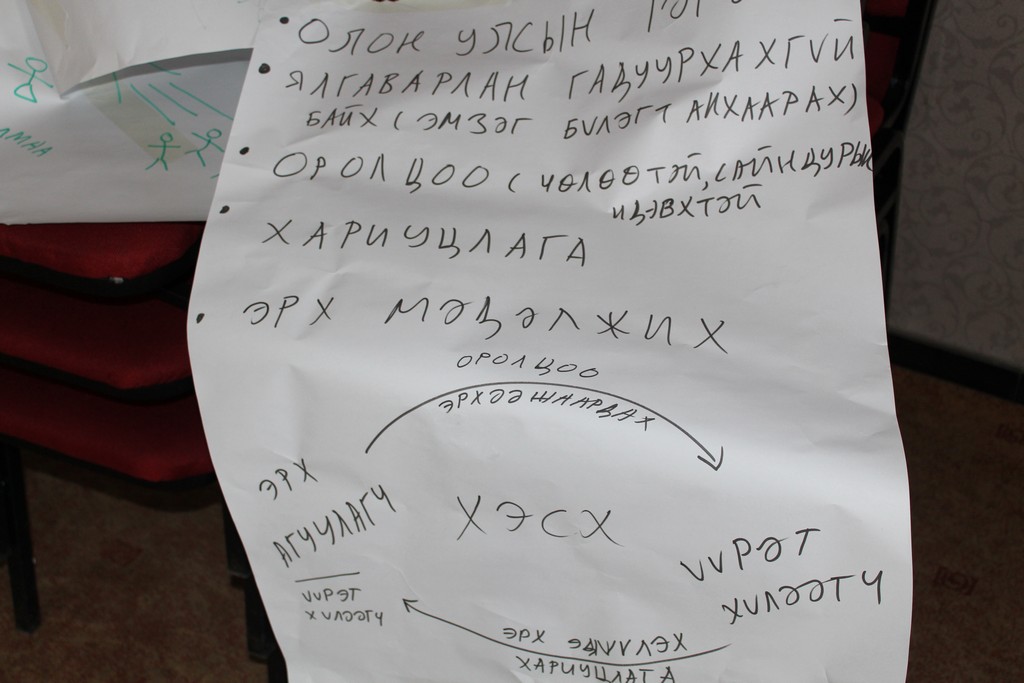 ОЛОН УЛСЫН
ЯЛГАВАРЛАН ГАДУУРХАХГVЙ
БАЙХ (ЭМЗЭГ БVЛЭГТ АНХААРАХ)
ОРОЛЦОО (ЧӨЛӨӨТЭЙ, САЙН ДУРЫН
ИДЭВХТЭЙ
ХАРИУЦЛАГА
ЭРХ МЭДЭЛЖИХ
ОРОЛЦОО
ЭРХЭЭ ШААРДАХ
ЭРХ
АГУУЛАГЧ
VVРЭТ
ХVЛЭЭГЧ
ХЭСХ
VVРЭГ
ХVЛЭЭГЧ
ЭРХ ЭДЛVVЛЭХ
ХАРИУЦЛАГА